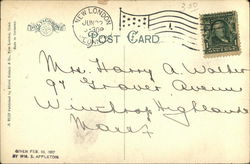 NEW LONDON
JUN
POST CARD
Mrs. Harry A. Walker
97 Grover Avenue
Winthrop Highlands
Mass
GIVEN FEB. 10, 1917
BY WM. S. APPLETON